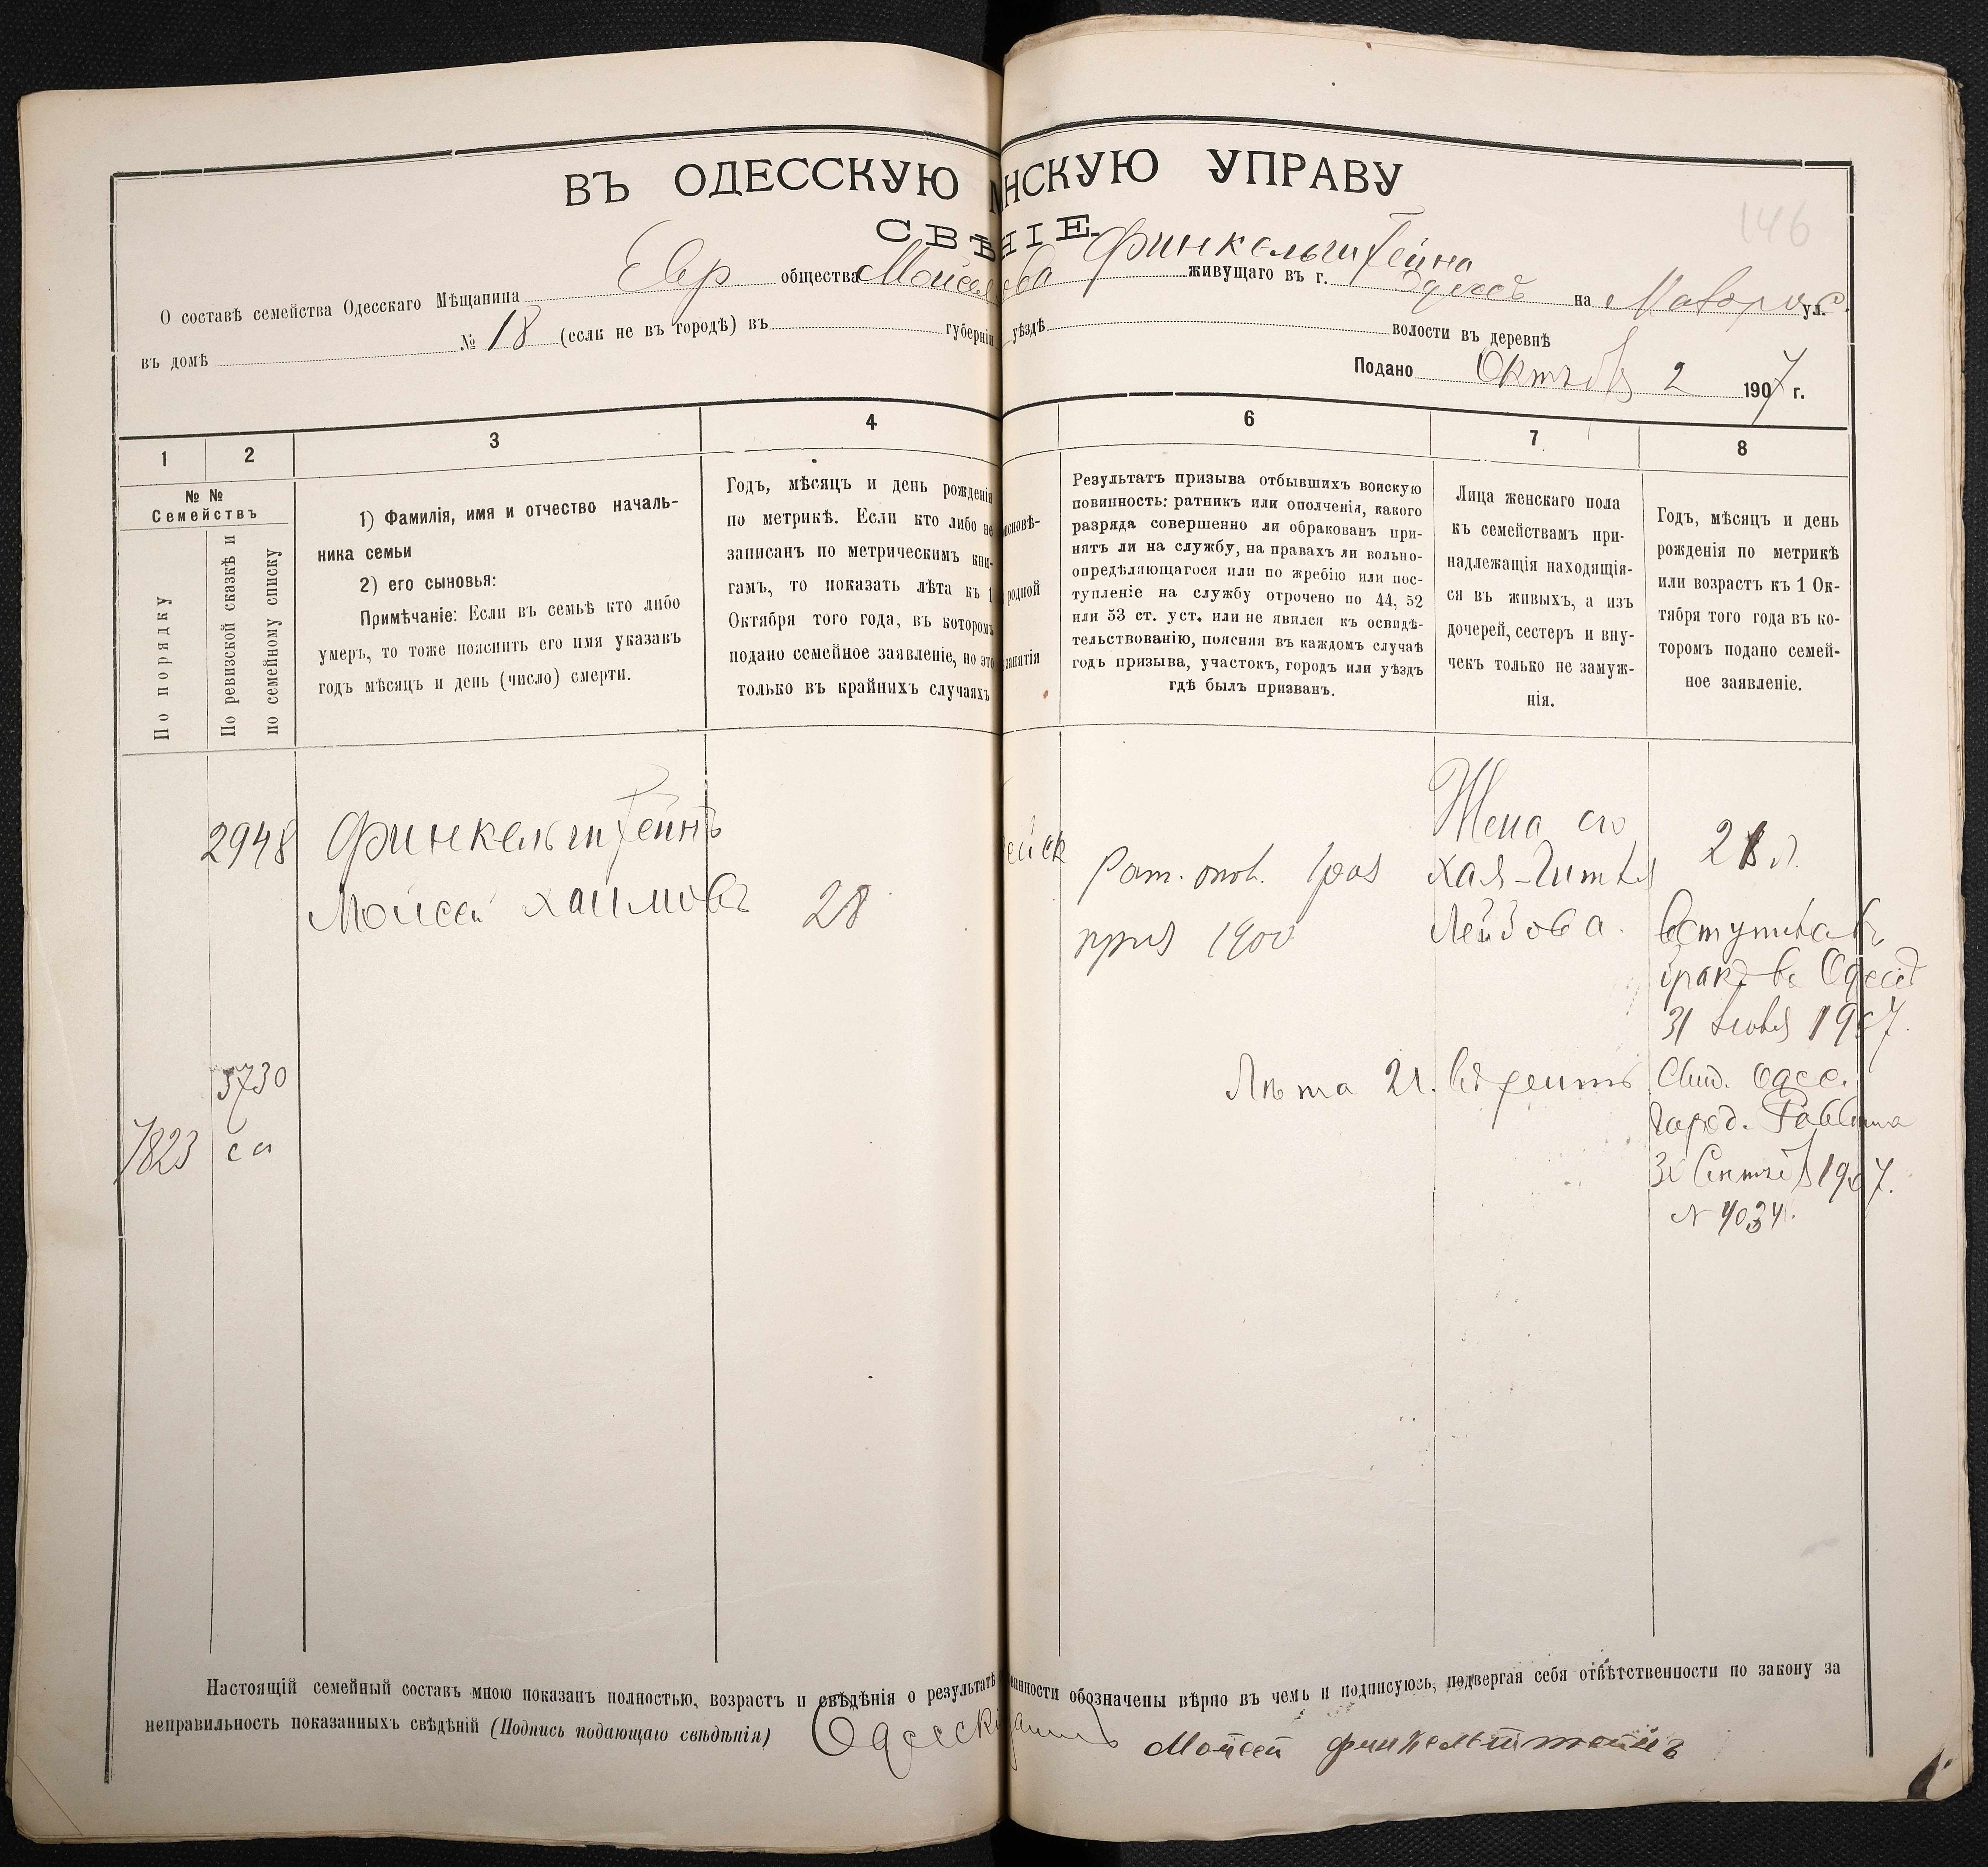 ВЪ ОДЕССКУЮ НСКУЮ УПРАВУ
СВѢ НІЕ.
146
О составѣ семейства Одесскаго Мѣщанина Евр общества Моисея Финкельштейна живущаго въ г. Одессѣ на ул.
въ домѣ № 18 (если не въ городѣ) въ губерніи уѣздѣ волости въ деревнѣ
Подано 2 1907 г.
1
2
3
4
6
7
8
№ №
Семействъ
По порядку
По ревизской сказкѣ и
по семейному списку
1) Фамилія, имя и отчество началь-
ника семьи
2) его сыновья:
Примѣчаніе: Если въ семьѣ кто либо
умеръ, то тоже пояснить его имя указавъ
годъ мѣсяцъ и день (число) смерти.
Годъ, мѣсяцъ и день рожденія
по метрикѣ. Если кто либо не
записанъ по метрическимъ кни-
гамъ, то показать лѣта къ 1
Октября того года, въ которомъ
подано семейное заявленіе, но это
только въ крайнихъ случаяхъ
исновѣ-
родной
занятія
Результатъ призыва отбывшихъ воискую
повинность: ратникъ или ополченія, какого
разряда совершенно ли обракованъ при-
нятъ ли на службу, на правахъ ли вольно-
опредѣляющагося или по жребію или пос-
тупленіе на службу отрочено по 44, 52
или 53 ст. уст. или не явился къ освидѣ-
тельствованію, поясняя въ каждомъ случаѣ
годъ призыва, участокъ, городъ или уѣздъ
гдѣ былъ призванъ.
Лица женскаго пола
къ семействамъ при-
надлежащія находящія-
ся въ живыхъ, а изъ
дочерей, сестеръ и вну-
чекъ только не замуж-
нія.
Годъ, мѣсяцъ и день
рожденія по метрикѣ
или возрастъ къ 1 Ок-
тября того года въ ко-
торомъ подано семей-
ное заявленіе.
2948 Финкельштейнъ
Моисей Хаимовъ 28
ейск
Рат. опол.
1900
Жена его
Хая-Гитля
Лейзова.
21 л.
вступилъ въ
бракъ въ Одессѣ
31 1907.
Лѣта 21.
Свид. Одес.
город. Раввина
1907.
N 4034.
5730
са
7823
Настоящій семейный составъ мною показанъ полностью, возрастъ и свѣдѣнія о результатѣ винности обозначены вѣрно въ чемъ и подписуюсь, подвергая себя отвѣтственности по закону за
неправильность показанныхъ свѣдѣній (Подпись подающаго свѣдѣнія) Одесскі Моисей Финкельштейнъ